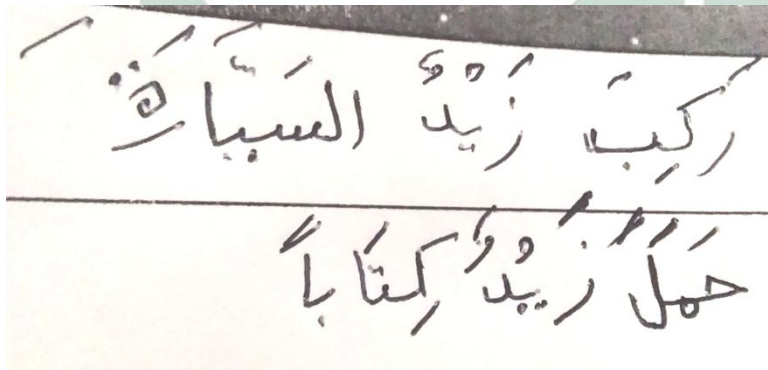 رَكِبَ زَيْدٌ السَيَّارَةَ
حَمَلَ زَيْدٌ كِتَاباً